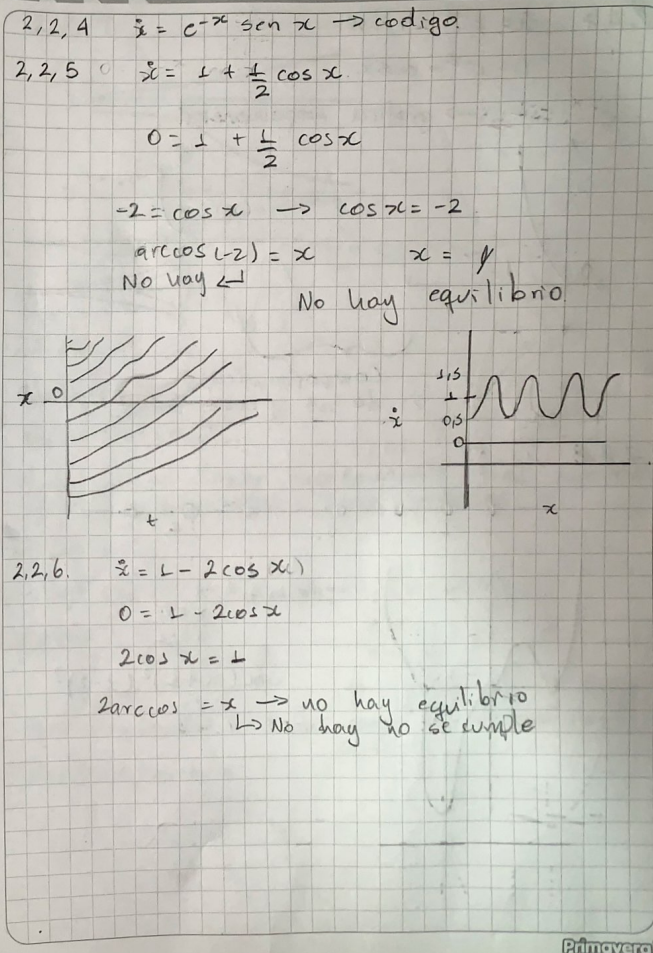 2,2,4 ẋ = e^-x sen x → codigo.
2,2,5 ẋ = 1 + 1/2 cos x
0 = 1 + 1/2 cos x
-2 = cos x → cos x = -2
arccos(-2) = x x =
No hay ↵
No hay equilibrio
x 0
t
1,5
1
0,5
0
ẋ
x
2,2,6. ẋ = 1 - 2cos x)
0 = 1 - 2cos x
2cos x = 1
2arccos = x → no hay equilibrio
↳ No hay no se cumple
Primavera